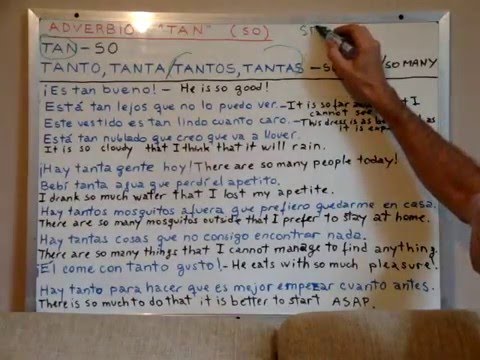 ADVERBIO "TAN" (SO)
TAN-SO
TANTO, TANTA/TANTOS, TANTAS - SO MANY
¡Es tan bueno! - He is so good!
Está tan lejos que no lo puedo ver. - It is so far that I cannot see
Este vestido es tan lindo cuanto caro. - This dress is as it is
Está tan nublado que creo que va a llover.
It is so cloudy that I think that it will rain.
¡Hay tanta gente hoy! There are so many people today!
Bebí tanta agua que perdí el apetito.
I drank so much water that I lost my apetite.
Hay tantos mosquitos afuera que prefiero quedarme en casa.
There are so many mosquitos outside that I prefer to stay at home.
Hay tantas cosas que no consigo encontrar nada.
There are so many things that I cannot manage to find anything.
Él come con tanto gusto! - He eats with so much pleasure!
Hay tanto para hacer que es mejor empezar cuanto antes.
There is so much to do that it is better to start ASAP.